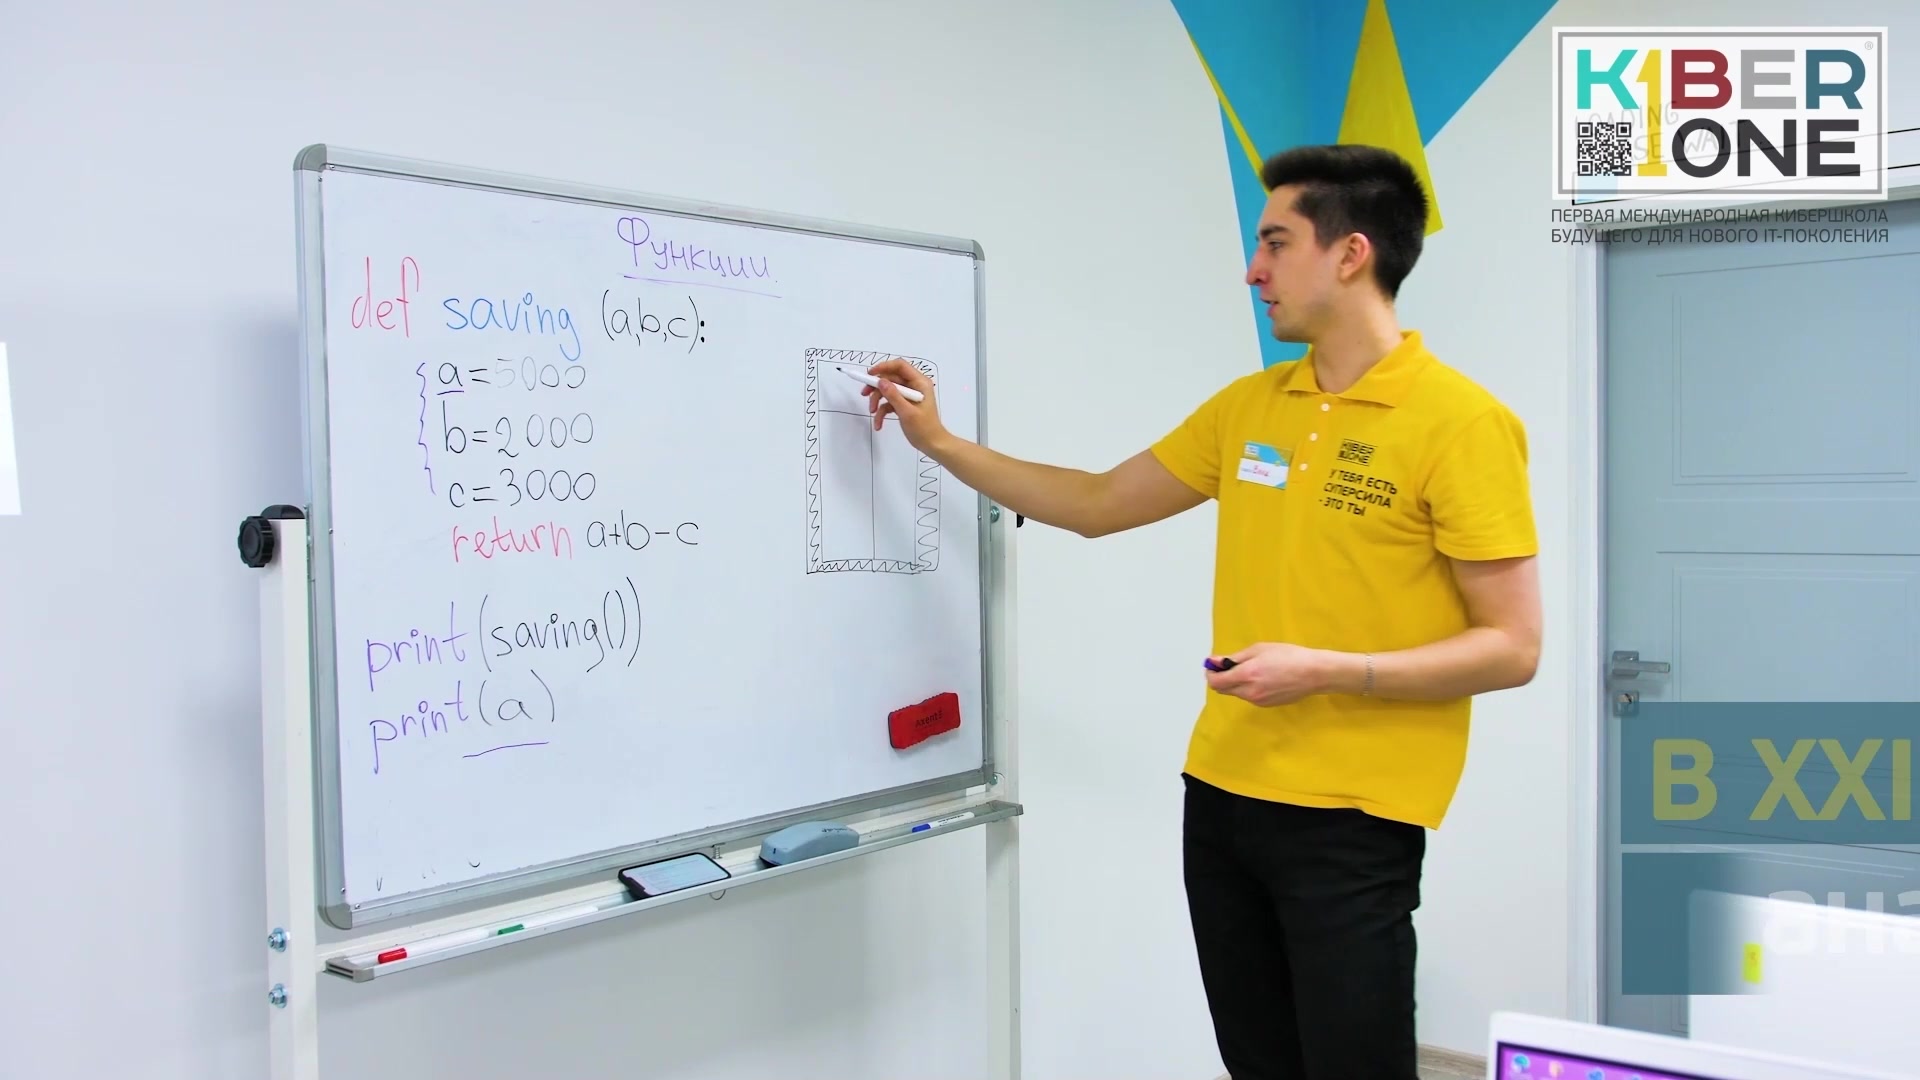 Функции
def saving (a,b,c):
a=5000
b=2000
c=3000
return a+b-c
print(saving())
print(a)
KIBER
ONE
ПЕРВАЯ МЕЖДУНАРОДНАЯ КИБЕРШКОЛА
БУДУЩЕГО ДЛЯ НОВОГО IT-ПОКОЛЕНИЯ
KIBER
ONE
У ТЕБЯ ЕСТЬ
СУПЕРСИЛА
- ЭТО ТЫ
В XXI
зна